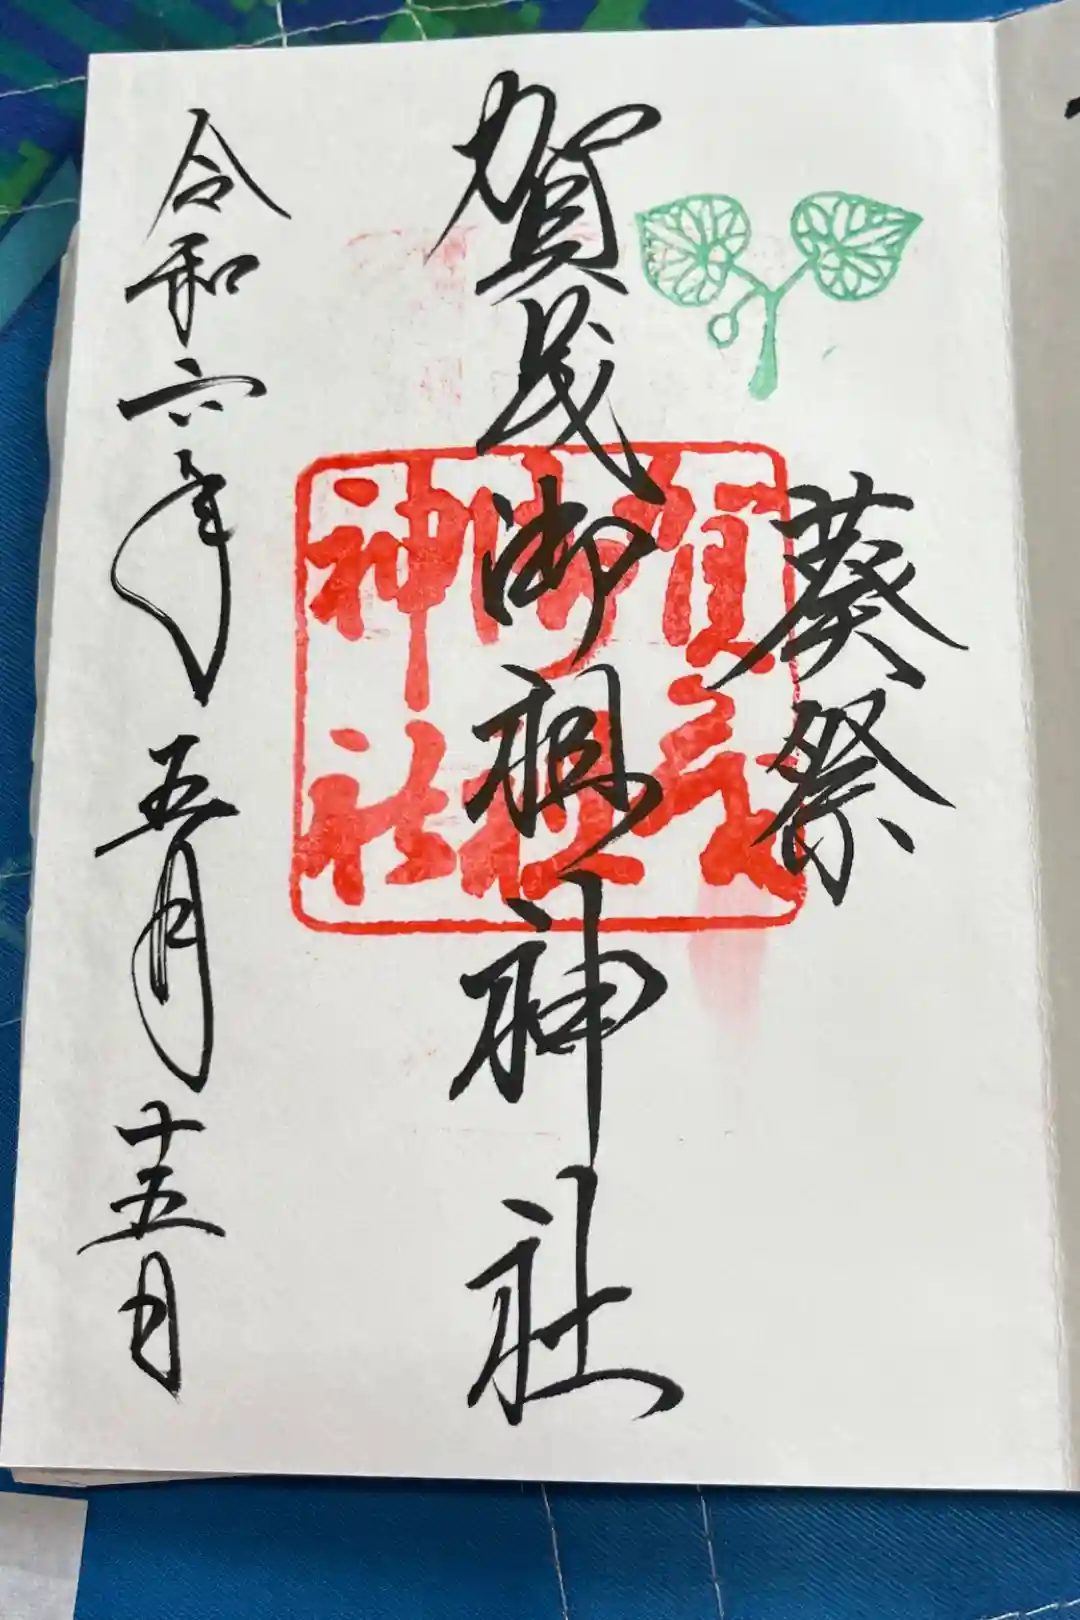 葵祭
賀茂御祖神社
賀茂
御祖
神社
令和六年五月十五日